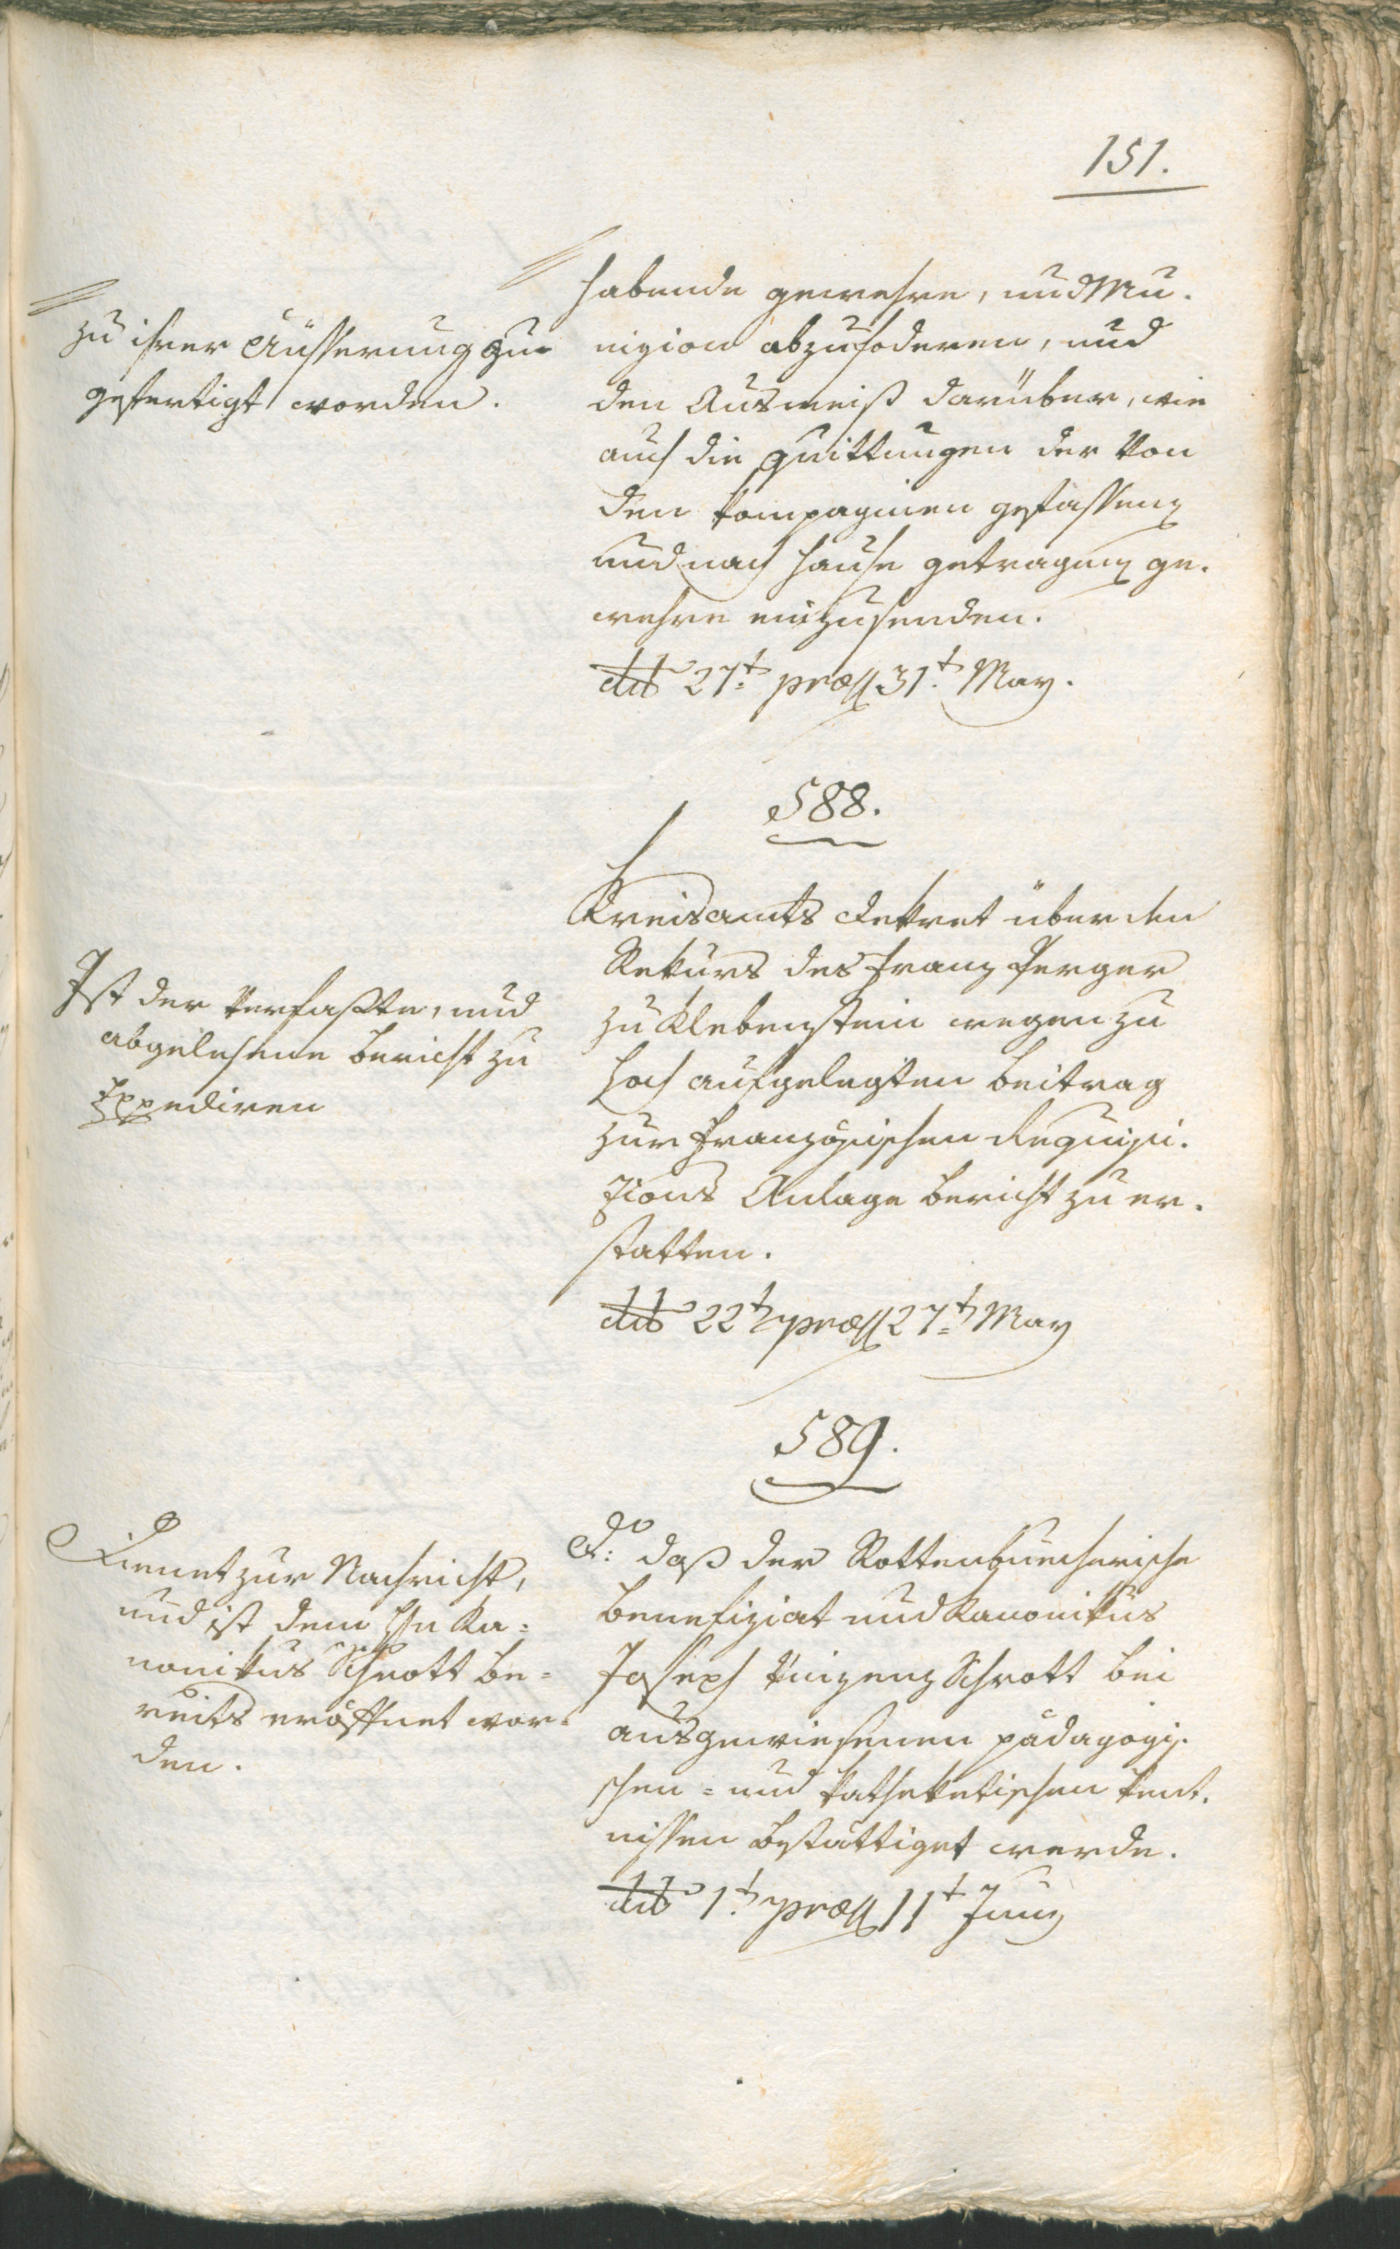 151.
zu ihrer Äusserung zu-
gefertigt worden.
habende gewehre, und Mu-
nizion abzufoderen, und
den Ausweiß darüber, wie
auch die quittungen der von
den kompagnien gefassten
und nach Hause getragenen ge-
wehre einzusenden.
ddto 27t. præs 31t. May.
588.
Kreisamts dekret über den
Rekurs des Franz Perger
zu Klebenstein wegen zu
hoch aufgelegten beitrag
zur französischen Requisi-
zions Anlage bericht zu er-
statten.
ddto 22t. præs 27t. May
Ist der verfaßte, und
abgelesene bericht zu
Expediren
589.
do. daß der Rottenbuecherische
benefiziat und kanonikus
Joseph Vinzenz Schrott bei
ausgewiesenen pädagogi-
schen- und kathekatischen kent-
nissen bestättiget werde.
ddto 1t. præs 11t Juny
Dienet zur Nachricht,
und ist dem Hn Ka-
nonikus Schrott be-
reits eröffnet wor-
den.